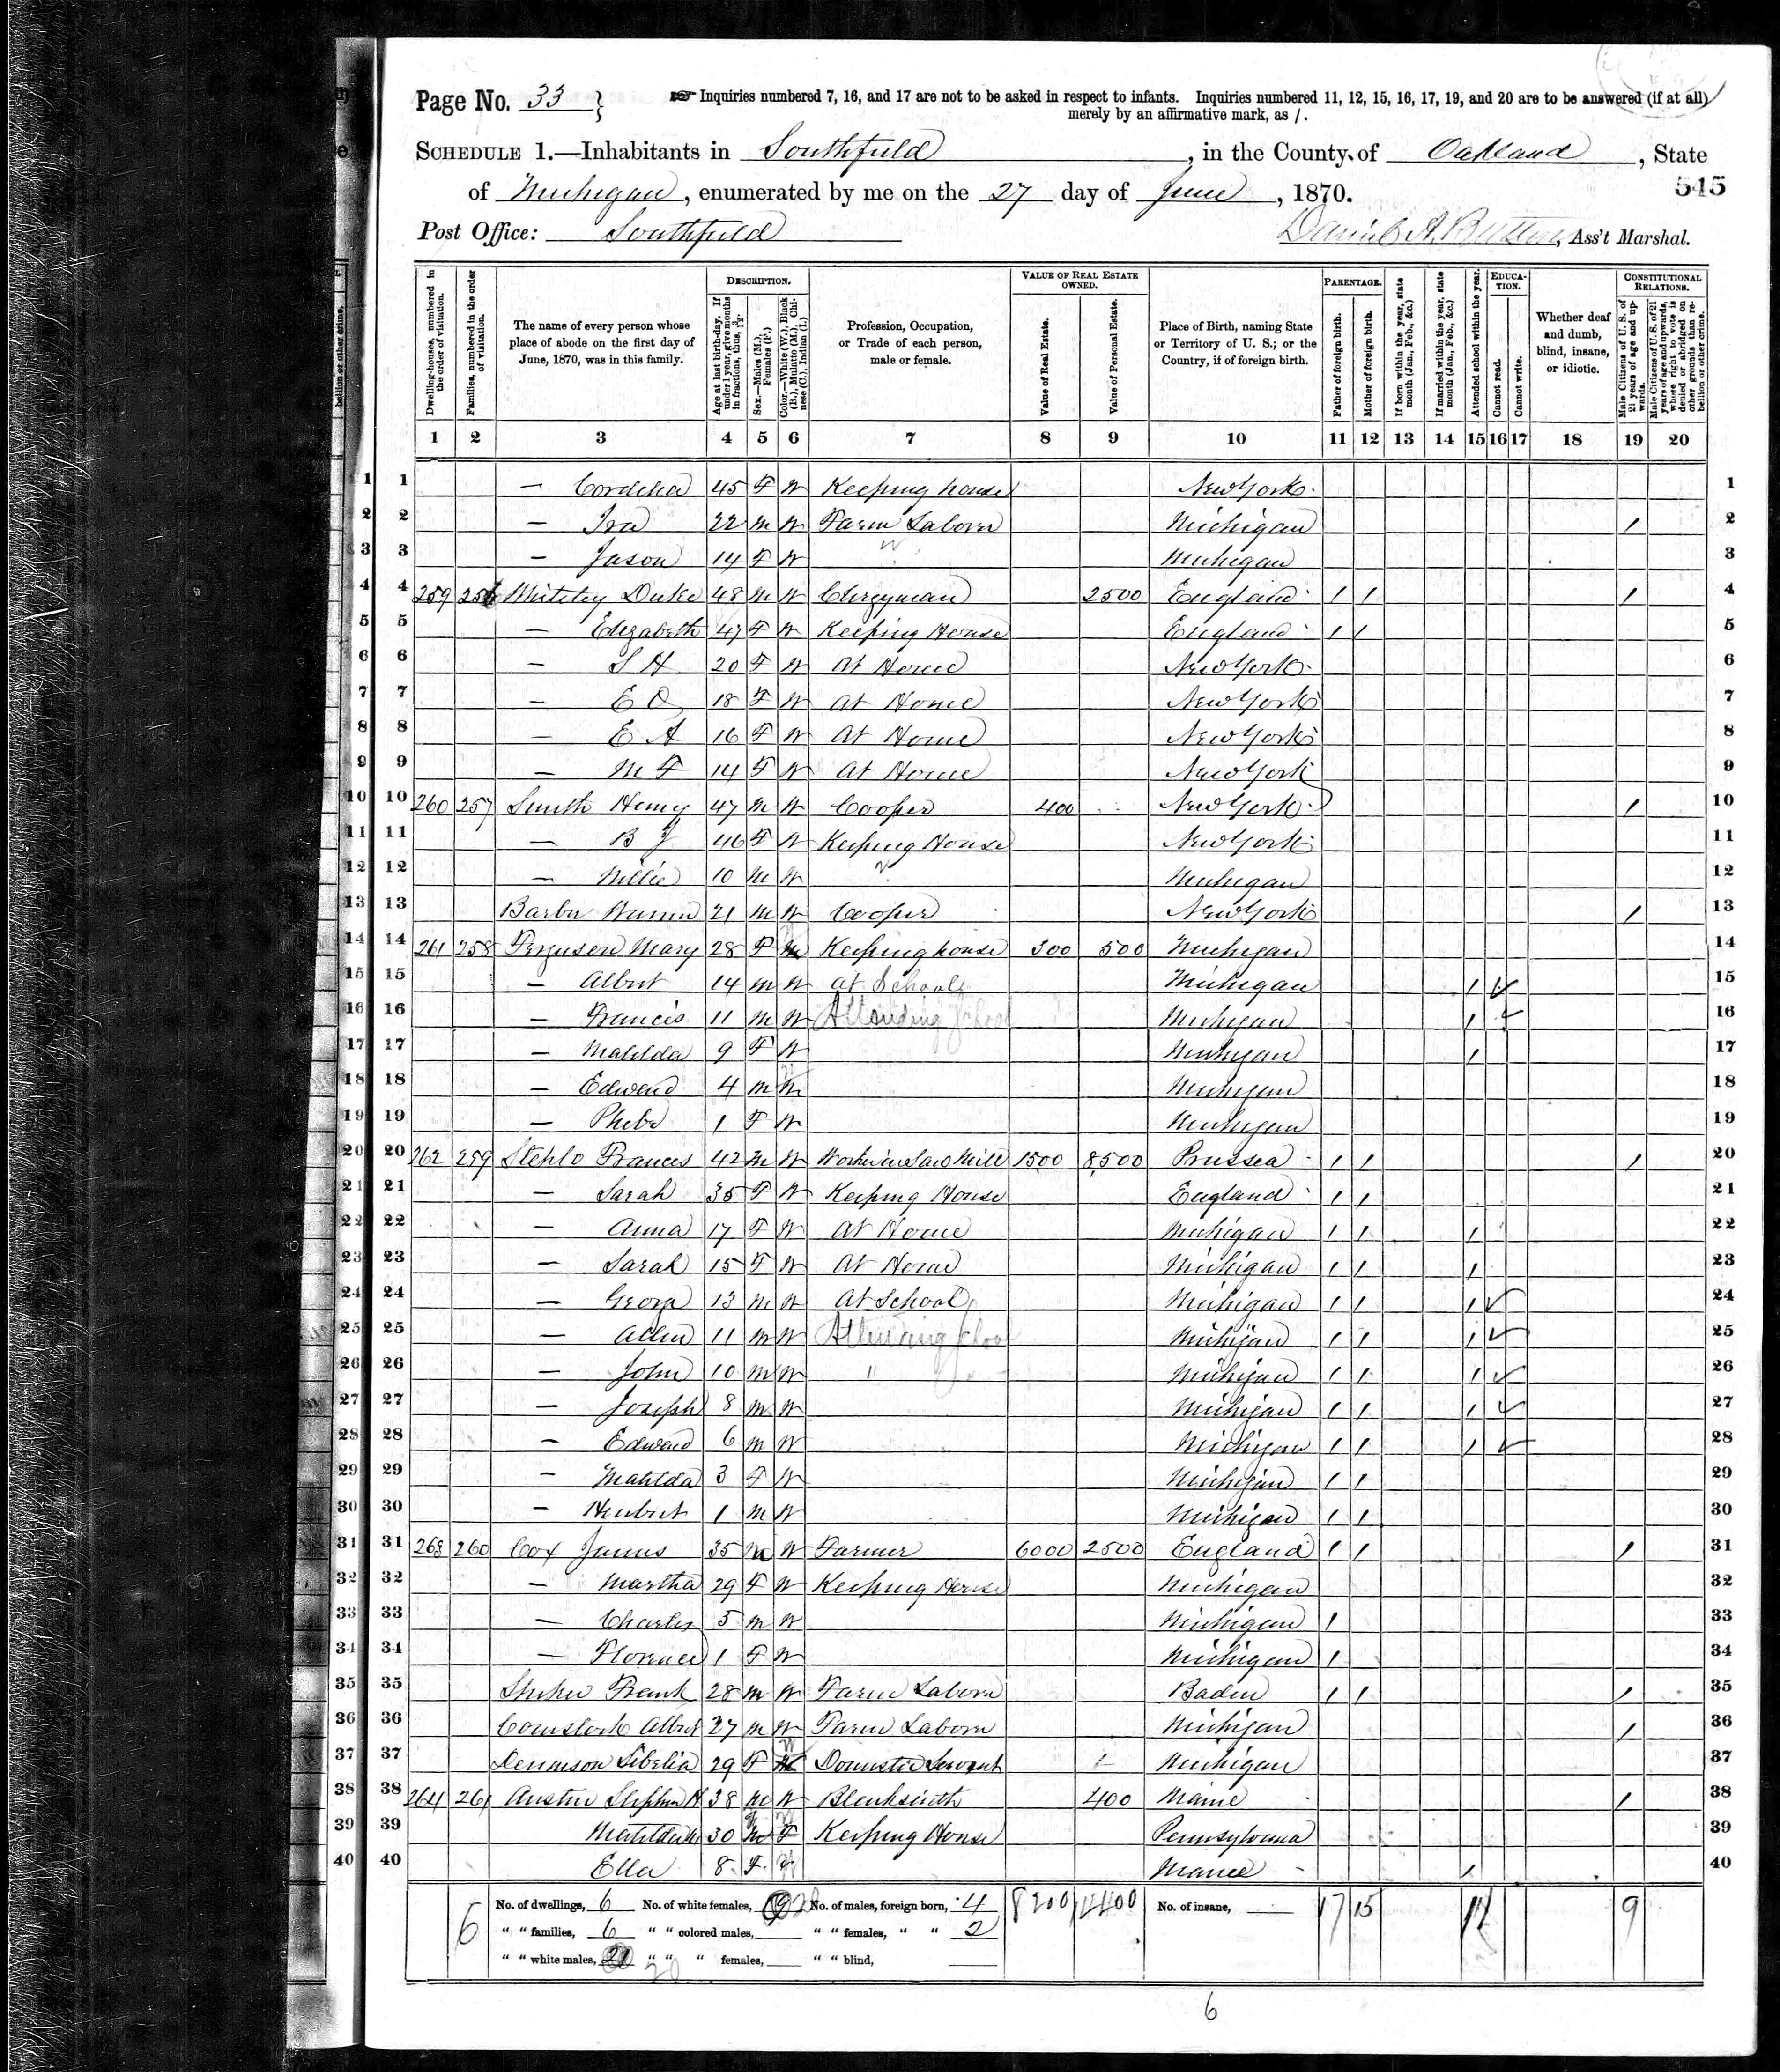 Page No. 33 }
Inquiries numbered 7, 16, and 17 are not to be asked in respect to infants. Inquiries numbered 11, 12, 15, 16, 17, 19, and 20 are to be answered (if at all)
merely by an affirmative mark, as /.
SCHEDULE 1.—Inhabitants in Southfield, in the County of Oakland, State
of Michigan, enumerated by me on the 27 day of June, 1870.
545
Post Office: Southfield
Daniel A. Button, Ass't Marshal.
Dwelling-houses, numbered in the order of visitation.
Families, numbered in the order of visitation.
The name of every person whose place of abode on the first day of June, 1870, was in this family.
DESCRIPTION.
Age at last birth-day. If under 1 year, give months in fractions, thus, 3/12.
Sex.—Males (M.), Females (F.)
Color.—White (W.), Black (B.), Mulatto (M.), Chinese (C.), Indian (I.)
Profession, Occupation, or Trade of each person, male or female.
VALUE OF REAL ESTATE OWNED.
Value of Real Estate.
Value of Personal Estate.
Place of Birth, naming State or Territory of U. S.; or the Country, if of foreign birth.
PARENTAGE.
Father of foreign birth.
Mother of foreign birth.
If born within the year, state month (Jan., Feb., &c.)
If married within the year, state month (Jan., Feb., &c.)
Attended school within the year.
EDUCATION.
Cannot read.
Cannot write.
Whether deaf and dumb, blind, insane, or idiotic.
CONSTITUTIONAL RELATIONS.
Male Citizens of U. S. of 21 years of age and upwards.
Male Citizens of U. S. of 21 years of age and upwards, whose right to vote is denied or abridged on other grounds than rebellion or other crime.
1 2 3 4 5 6 7 8 9 10 11 12 13 14 15 16 17 18 19 20
1 — Cordelia 45 F W Keeping house New York 1
2 — Ira 22 M W Farm Laborer Michigan / 2
3 — Jason 14 F W Michigan 3
4 259 256 Duke 48 M W Clergyman 2500 England / / / 4
5 — Elizabeth 47 F W Keeping House England / / 5
6 — S H 20 F W At Home New York 6
7 — E 18 F W At Home New York 7
8 — E A 16 F W At Home New York 8
9 — M F 14 F W At Home New York 9
10 260 257 Smith Henry 47 M W Cooper 400 New York / 10
11 — B J 46 F W Keeping House New York 11
12 — Willie 10 M W Michigan 12
13 Barber Warren 21 M W Cooper New York / 13
14 261 258 Ferguson Mary 28 F W Keeping house 300 500 Michigan 14
15 — Albert 14 M W At School Michigan / / 15
16 — Francis 11 M W Attending School Michigan / / 16
17 — Matilda 9 F W Michigan / 17
18 — Edward 4 M W Michigan 18
19 — Phebe 1 F W Michigan 19
20 262 259 Stehlo Frances 42 M W Works in Saw Mill 1500 8500 Prussea / / / 20
21 — Sarah 35 F W Keeping House England / / 21
22 — Anna 17 F W At Home Michigan / / / 22
23 — Sarah 15 F W At Home Michigan / / / 23
24 — George 13 M W At School Michigan / / / / 24
25 — Allen 11 M W Attending School Michigan / / / / 25
26 — John 10 M W " Michigan / / / / 26
27 — Joseph 8 M W Michigan / / / / 27
28 — Edward 6 M W Michigan / / / / 28
29 — Matilda 3 F W Michigan / / 29
30 — Herbert 1 M W Michigan / / 30
31 263 260 Cox James 35 M W Farmer 6000 2500 England / / / 31
32 — Martha 29 F W Keeping House Michigan 32
33 — Charles 5 M W Michigan / 33
34 — Florence 1 F W Michigan / 34
35 Frank 28 M W Farm Laborer Baden / / / 35
36 Comstock Albert 27 M W Farm Laborer Michigan / 36
37 Dennison Libelia 29 F W Domestic Servant Michigan 37
38 264 261 Austin Stephen H 38 M W Blacksmith 400 Maine / 38
39 Matilda 30 F W Keeping House Pennsylvania 39
40 Ella 8 F W Maine / 40
6 No. of dwellings, 6 No. of white females, 20 No. of males, foreign born, 4 8200 14400 No. of insane, 17 15 11 9
" " families, 6 " " colored males, " " females, " " 2
" " white males, 20 " " " females, " " blind,
6